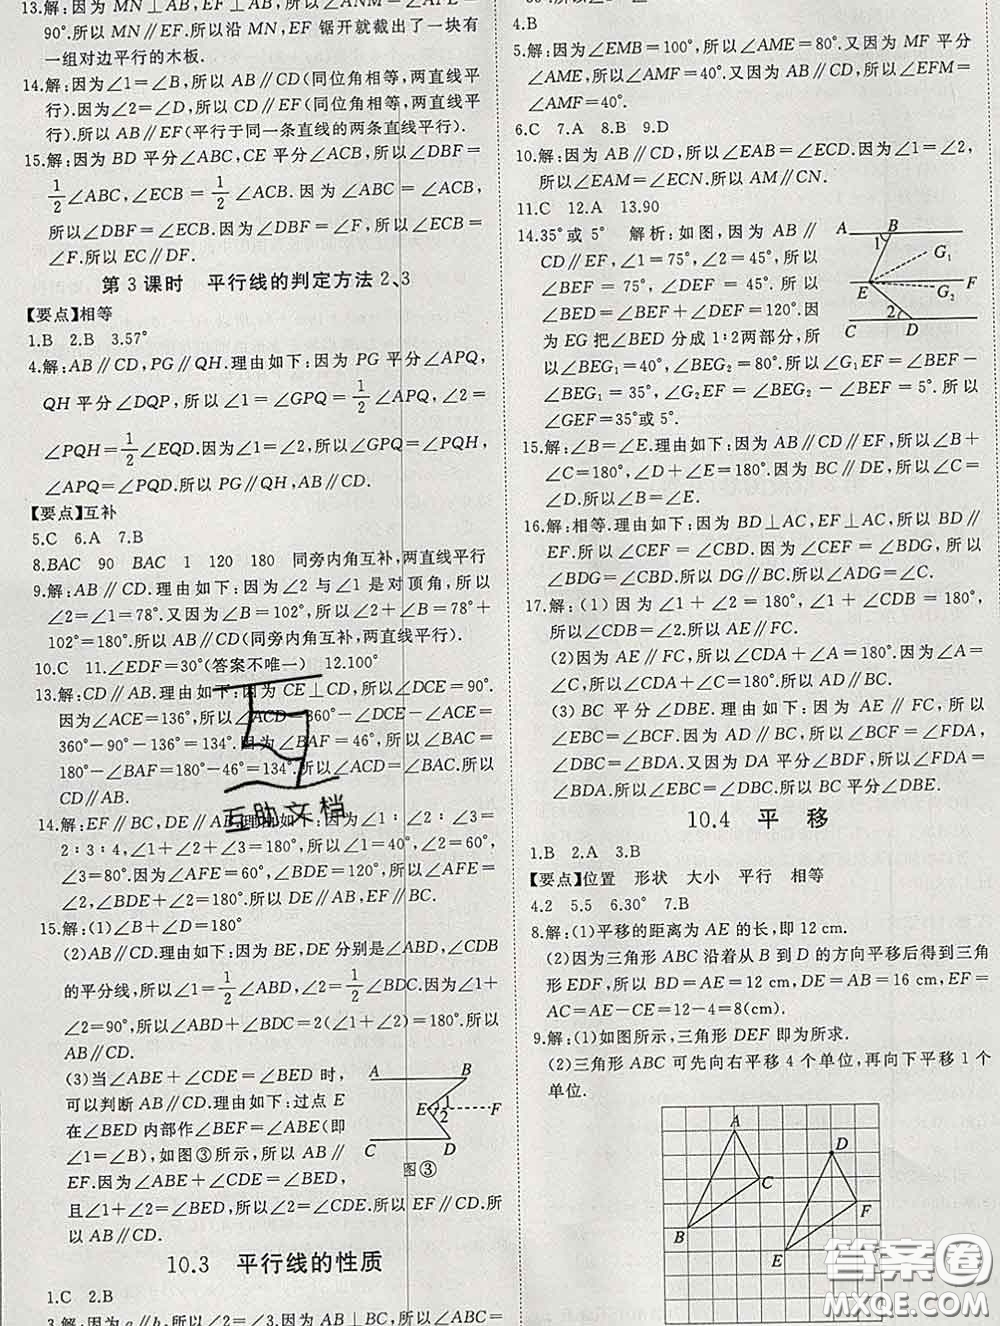 13.解:因为 MN⊥AB,EF⊥AB,所以∠ANM=∠AFE=
90°.所以 MN∥EF.所以沿 MN,EF 锯开就截出了一块有
一组对边平行的木板.
14.解:因为∠1=∠B,所以 AB∥CD(同位角相等,两直线平
行).因为∠2=∠D,所以 CD∥EF(同位角相等,两直线平
行).所以 AB∥EF(平行于同一条直线的两条直线平行).
15.解:因为 BD 平分∠ABC,CE 平分∠ACB,所以∠DBF=
1/2∠ABC,∠ECB=1/2∠ACB.因为∠ABC=∠ACB,
所以∠DBF=∠ECB.因为∠DBF=∠F,所以∠ECB=
∠F.所以 EC∥DF.
第 3 课时 平行线的判定方法 2、3
【要点】相等
1.B 2.B 3.57°
4.解:AB∥CD,PG∥QH.理由如下:因为 PG 平分∠APQ,
QH 平分∠DQP,所以∠1=∠GPQ=1/2∠APQ,∠2=
∠PQH=1/2∠EQD.因为∠1=∠2,所以∠GPQ=∠PQH,
∠APQ=∠PQD.所以 PG∥QH,AB∥CD.
【要点】互补
5.C 6.A 7.B
8.BAC 90 BAC 1 120 180 同旁内角互补,两直线平行
9.解:AB∥CD.理由如下:因为∠2 与∠1 是对顶角,所以
∠2=∠1=78°.又因为∠B=102°,所以∠2+∠B=78°+
102°=180°.所以 AB∥CD(同旁内角互补,两直线平行).
10.C 11.∠EDF=30°(答案不唯一) 12.100°
13.解:CD∥AB.理由如下:因为 CE⊥CD,所以∠DCE=90°.
因为∠ACE=136°,所以∠ACD=360°-∠DCE-∠ACE=
360°-90°-136°=134°.因为∠BAF=46°,所以∠BAC=
180°-∠BAF=180°-46°=134°.所以∠ACD=∠BAC.所以
CD∥AB.
14.解:EF∥BC,DE∥AB.理由如下:因为∠1:∠2:∠3=
2:3:4,∠1+∠2+∠3=180°,所以∠1=40°,∠2=60°,
∠3=80°.因为∠AFE=60°,∠BDE=120°,所以∠AFE=
∠2,∠BDE+∠2=180°.所以 EF∥BC,DE∥AB.
15.解:(1)∠B+∠D=180°
(2)AB∥CD.理由如下:因为 BE,DE 分别是∠ABD,∠CDB
的平分线,所以∠1=1/2∠ABD,∠2=1/2∠BDC.因为∠1+
∠2=90°,所以∠ABD+∠BDC=2(∠1+∠2)=180°.所以
AB∥CD.
(3)当∠ABE+∠CDE=∠BED 时,
可以判断 AB∥CD.理由如下:过点 E
在∠BED 内部作∠BEF=∠ABE(即
∠1=∠B),如图③所示,所以 AB∥
EF.因为∠ABE+∠CDE=∠BED,
且∠1+∠2=∠BED,所以∠CDE=∠2.所以 EF∥CD.所
以 AB∥CD.
A B
E 1 2 F
C D
图③
10.3 平行线的性质
1.C 2.B
3.解:因为 a∥b,所以∠2=∠3.因为 AB⊥BC,所以∠ABC=
4.B
5.解:因为∠EMB=100°,所以∠AME=80°.又因为 MF 平分
∠AME,所以∠AMF=40°.又因为 AB∥CD,所以∠EFM=
∠AMF=40°.
6.C 7.A 8.B 9.D
10.解:因为 AB∥CD,所以∠EAB=∠ECD.因为∠1=∠2,
所以∠EAM=∠ECN.所以 AM∥CN.
11.C 12.A 13.90
14.35°或 5° 解析:如图,因为 AB∥
CD∥EF,∠1=75°,∠2=45°,所以
∠BEF=75°,∠DEF=45°.所以
∠BED=∠BEF+∠DEF=120°.因
为 EG 把∠BED 分成 1:2两部分,所
以∠BEG1=40°,∠BEG2=80°.所以∠G1EF=∠BEF-
∠BEG1=35°,∠G2EF=∠BEG2-∠BEF=5°.所以
∠GEF=35°或5°.
A B
1
G1
E F
G2
2
C D
15.解:∠B=∠E.理由如下:因为 AB∥CD∥EF,所以∠B+
∠C=180°,∠D+∠E=180°.因为 BC∥DE,所以∠C=
∠D.所以∠B=∠E.
16.解:相等.理由如下:因为 BD⊥AC,EF⊥AC,所以 BD∥
EF.所以∠CEF=∠CBD.因为∠CEF=∠BDG,所以
∠BDG=∠CBD.所以 DG∥BC.所以∠ADG=∠C.
17.解:(1)因为∠1+∠2=180°,∠1+∠CDB=180°,
所以∠CDB=∠2.所以 AE∥FC.
(2)因为 AE∥FC,所以∠CDA+∠A=180°.因为∠A=
∠C,所以∠CDA+∠C=180°.所以 AD∥BC.
(3)BC 平分∠DBE.理由如下:因为 AE∥FC,所以
∠EBC=∠BCF.因为 AD∥BC,所以∠BCF=∠FDA,
∠DBC=∠BDA.又因为 DA 平分∠BDF,所以∠FDA=
∠BDA.所以∠EBC=∠DBC.所以 BC 平分∠DBE.
10.4 平 移
1.B 2.A 3.B
【要点】位置 形状 大小 平行 相等
4.2 5.5 6.30° 7.B
8.解:(1)平移的距离为 AE 的长,即 12 cm.
(2)因为三角形 ABC 沿着从 B 到 D 的方向平移后得到三角
形 EDF,所以 BD=AE=12 cm,DE=AB=16 cm,EF=
AC=AE-CE=12-4=8(cm).
9.解:(1)如图所示,三角形 DEF 即为所求.
(2)三角形 ABC 可先向右平移 4 个单位,再向下平移 1 个
单位.
A
D
C
F
B
E
互助文档
答案圈
MXQE.COM